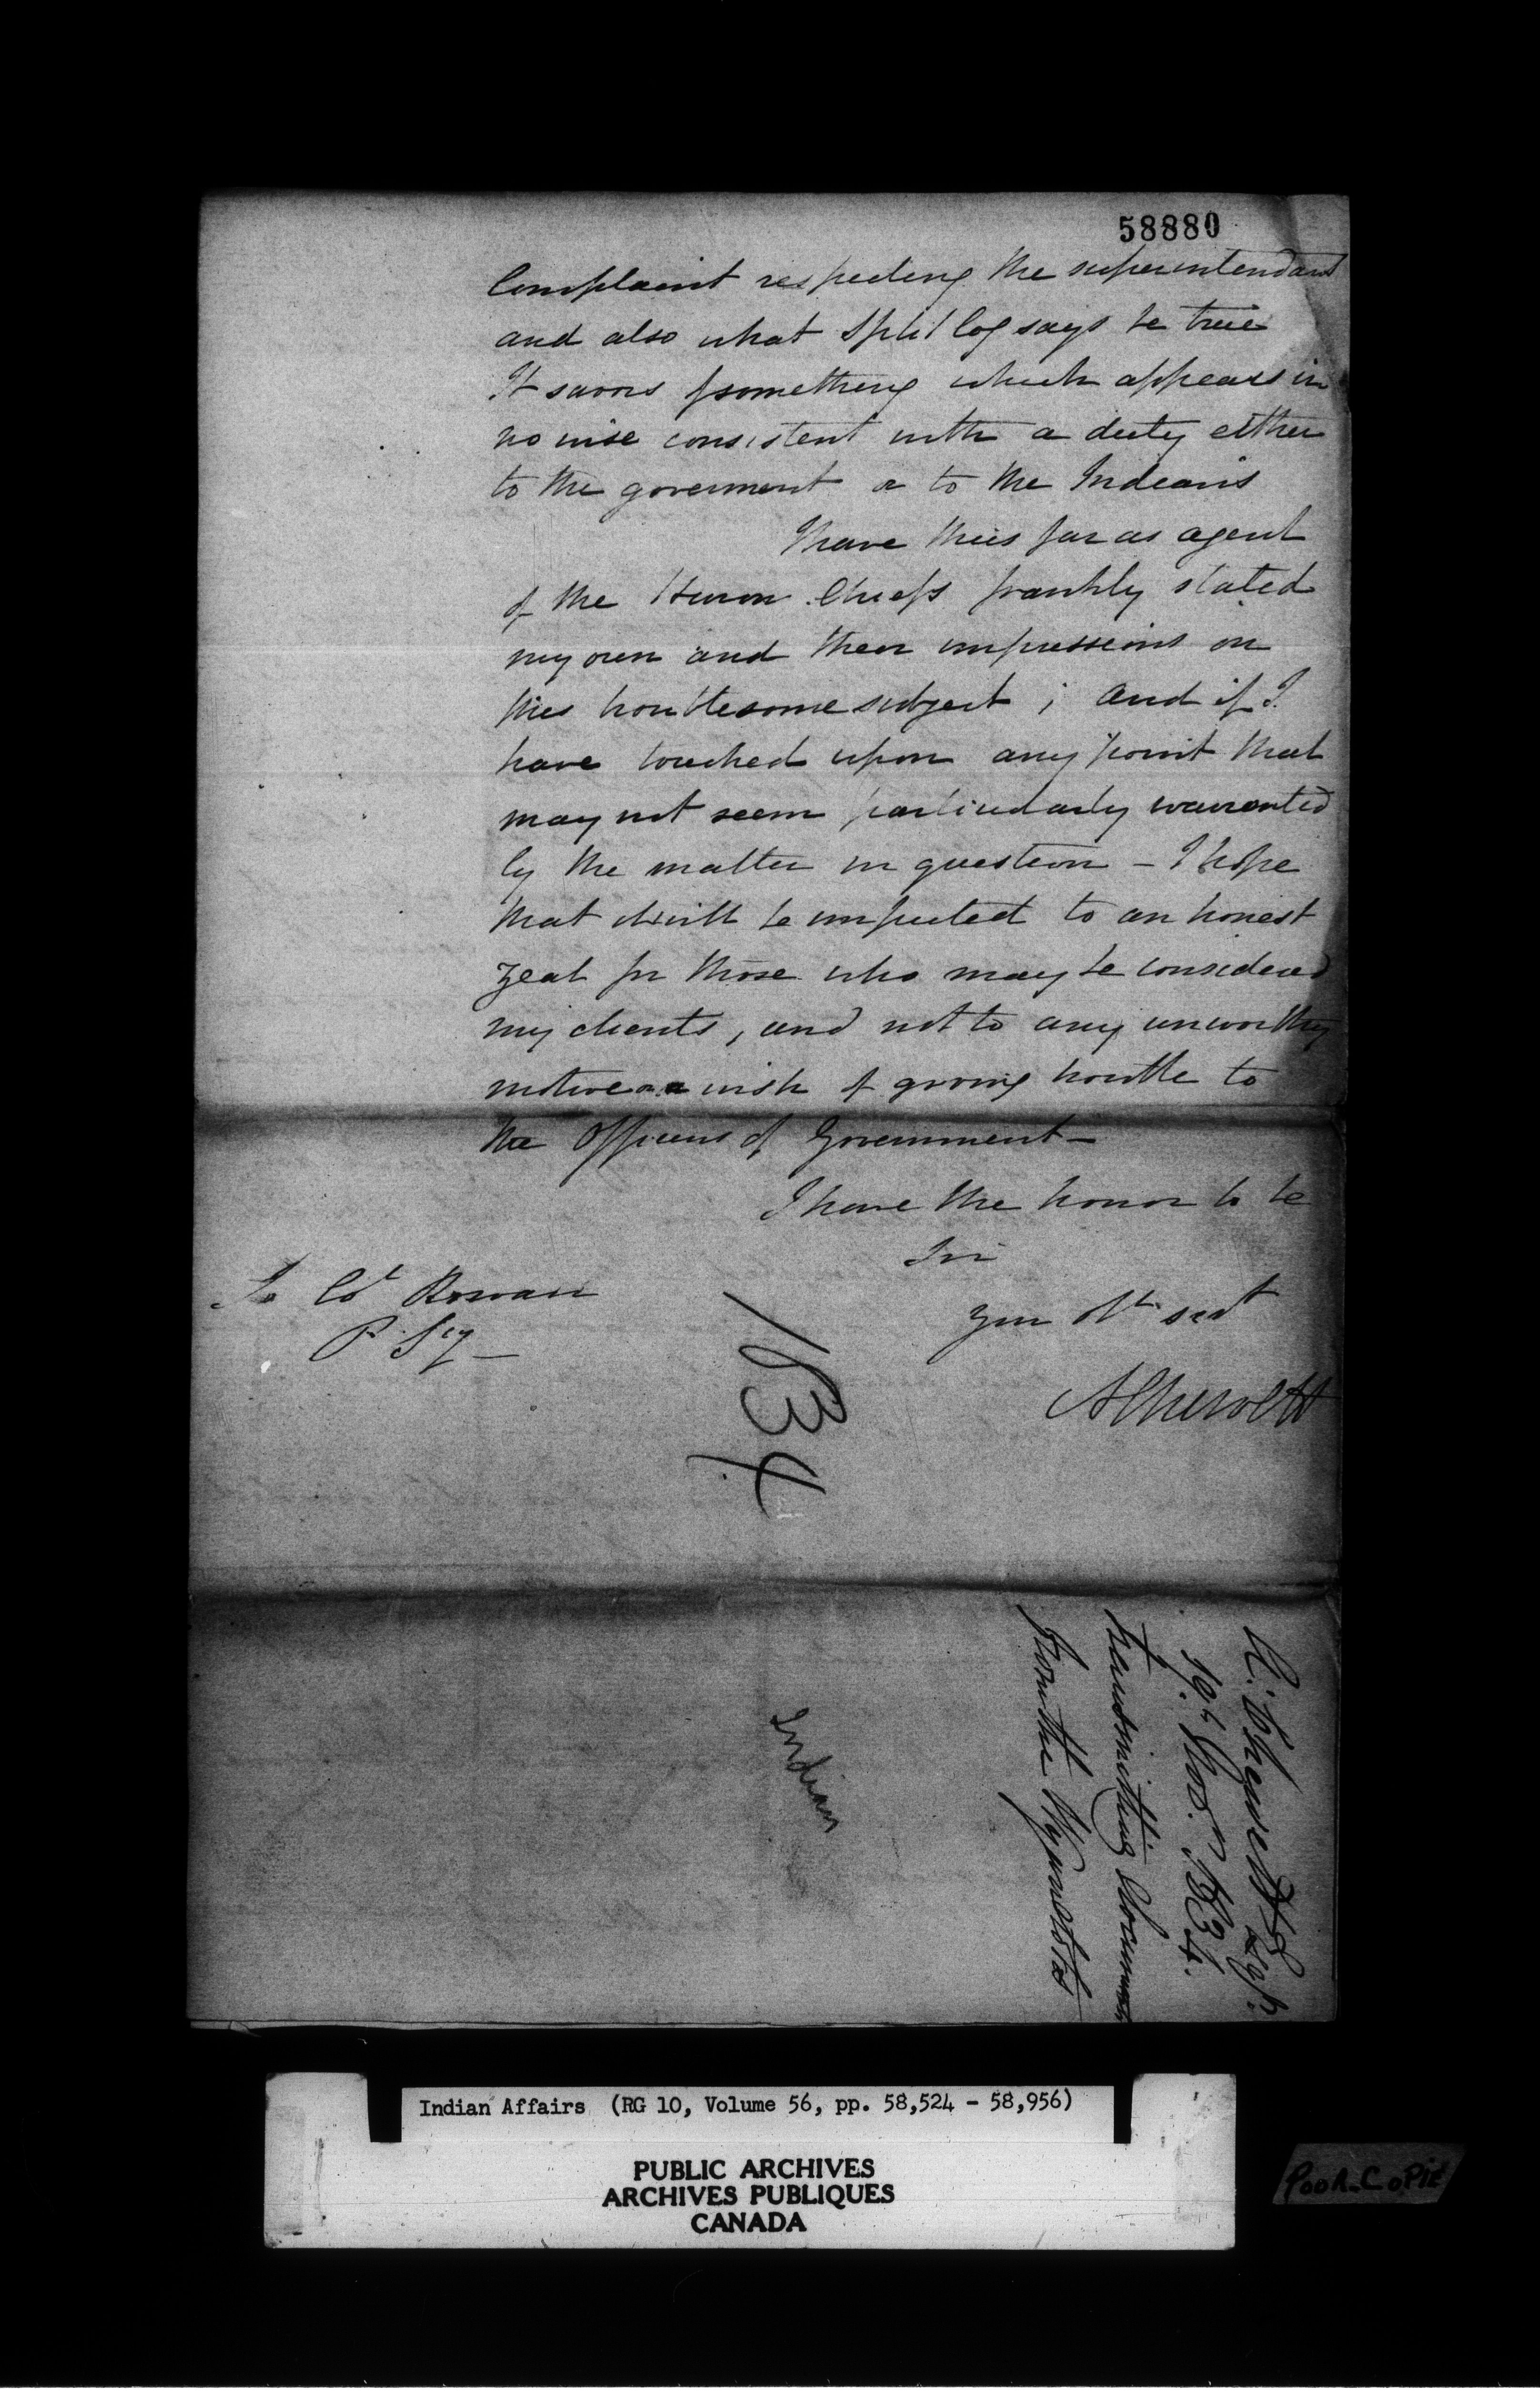 58880
Complaint respecting the superintendant
and also what Split log says be true
It savors of something which appears in
no wise consistent with a duty either
to the goverment or to the Indians
I have thus far as agent
of the Huron Chiefs frankly stated
my own and their impressions on
this troublesome subject ; and if I
have touched upon any point that
may not seem particularly warranted
by the matter in question - I hope
that it will be imputed to an honest
zeal for those who may be considered
my clients, and not to any unworthy
motive or a wish of giving trouble to
the Officers of Government -
I have the honor to be
Sir
Your Obt servt
A Chewett
To Col Rowan
P. Sey -
1834
Indian
A. Chewett Esqr.
19th Novr. 1834.
transmitting Documents
from the Wyandotts
Indian Affairs (RG 10, Volume 56, pp. 58,524 - 58,956)
PUBLIC ARCHIVES
ARCHIVES PUBLIQUES
CANADA
POOR_COPIE